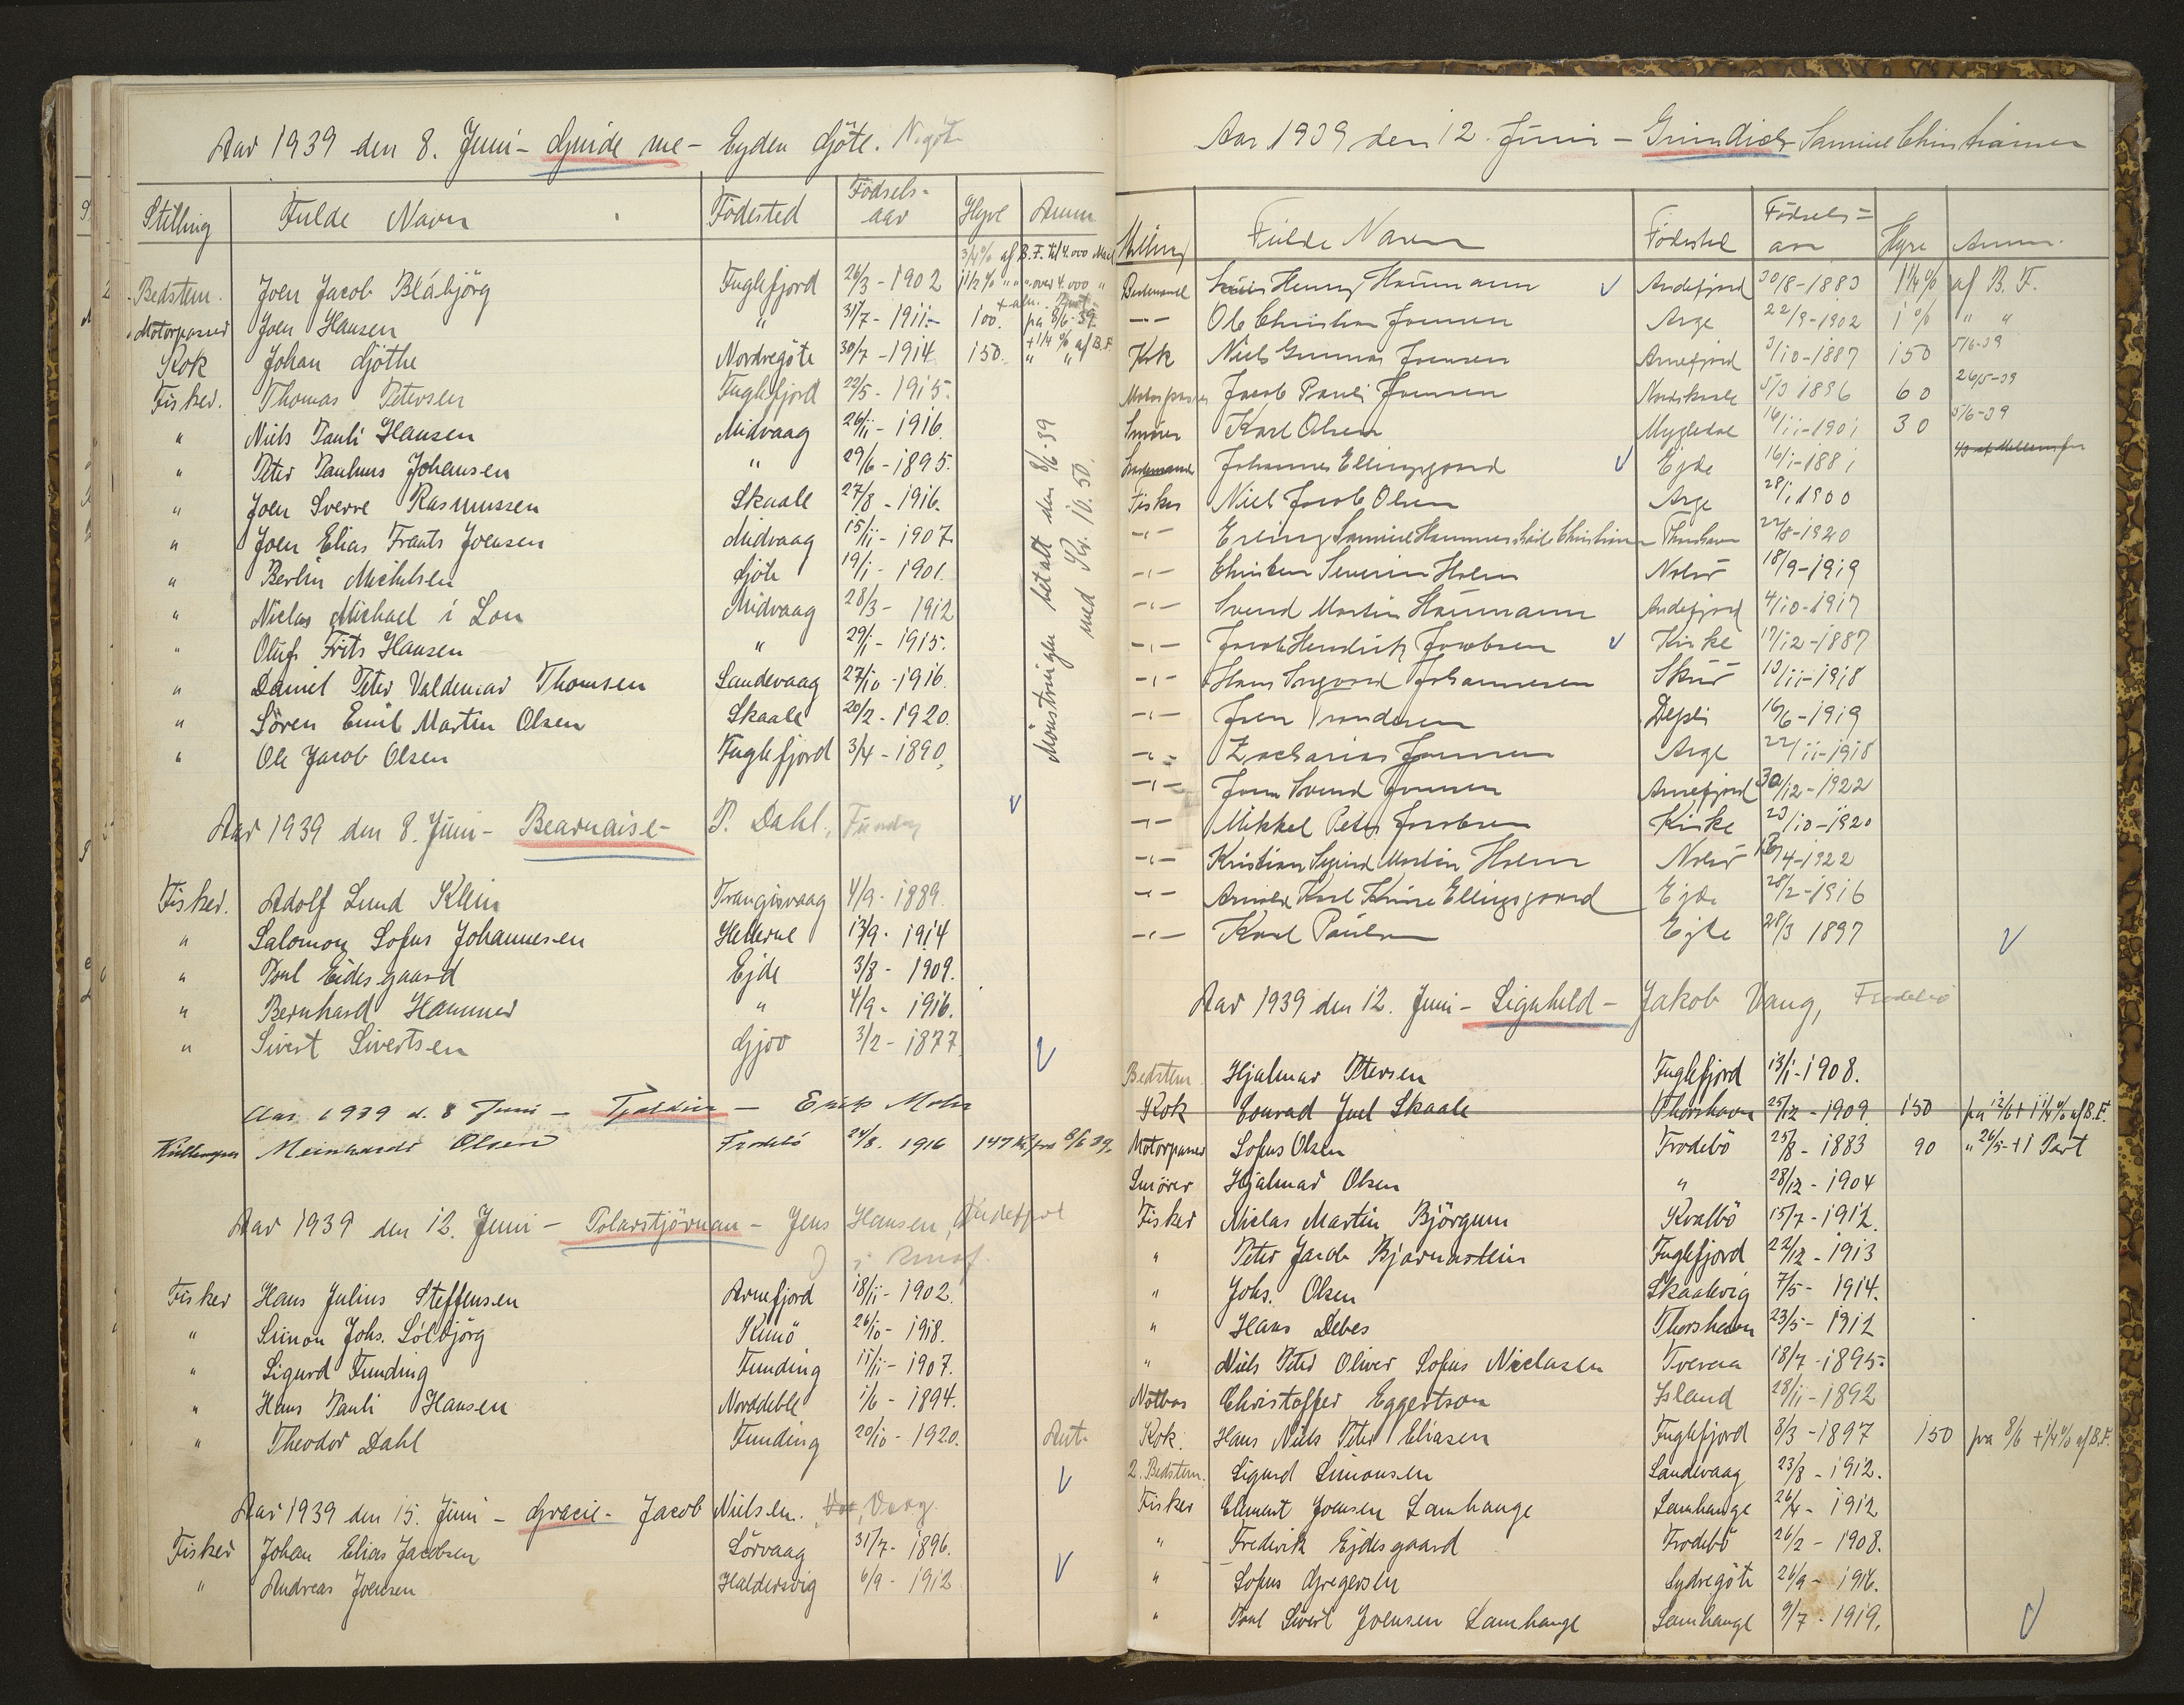 Aar 1939 den 8. Juni - Guide me - Eyden Göte. N. göt
Stilling Fulde Navn Födested Födsels-aar Hyre Anm
3/4% af B.F. til 4.000 Mark
Bedstem. Joen Jacob Blábjörg Fuglefjord 26/3 - 1902 1 1/2 % " " over 4.000 "
Motorpasser Joen Hansen " 31/7 - 1911 - 100. på 8/6 - 39
Kok Johan Göthe Nordregöte 30/7 - 1914 150. + 1/4 % af B.F.
Fisker. Thomas Petersen Fuglefjord 22/5 - 1915.
" Niels Pauli Hansen Midvaag 26/11 - 1916.
" Peter Paulinus Johansen " 29/6 - 1895.
" Joen Sverre Rasmussen Skaale 27/8 - 1916.
" Joen Elias Frants Joensen Midvaag 15/11 - 1907
" Berlin Michelsen Göte 19/1 - 1901.
" Niclas Michael i Lon Midvaag 28/3 - 1912
" Oluf Frits Hansen " 29/1 - 1915.
" Daniel Peter Valdemar Thomsen Sandevaag 27/10 - 1916.
" Sören Emil Martin Olsen Skaale 20/2 - 1920.
" Ole Jacob Olsen Fuglefjord 3/4 - 1890.
Mönstringen betalt den 8/6-39
med Kr. 10.50.
Aar 1939 den 8. Juni - Bearnaise - P. Dahl, Funding
Fisker. Adolf Lund Klein Trangisvaag 4/9 - 1889.
" Salomon Sofus Johannesen Hellerne 13/9 - 1914
" Poul Eidesgaard Ejde 3/8 - 1909.
" Bernhard Hammer " 4/9 - 1916.
" Sivert Sivertsen Gjov 3/2 - 1877.
Aar 1939 d. 8 Juni - Tjaldur - Erik Mohr
Meinhardt Olsen Frodebö 24/8. 1916 147 Kr. fra 8/6 39.
Aar 1939 den 12. Juni - Polarstjörnan - Jens Hansen, Andefjord
Fisker Hans Julius Steffensen Arnefjord 18/11 - 1902.
" Simon Johs. Sólbjörg Kunö 26/10 - 1918.
" Sigurd Funding Funding 11/11 - 1907.
" Hans Pauli Hansen Norddeble 1/6 - 1894.
" Theodor Dahl Funding 20/10 - 1920. Ant.
Aar 1939 den 15. Juni - Gracie - Jacob Nielsen. Vaag.
Fisker Johan Elias Jacobsen Sörvaag 31/7 - 1896.
" Andreas Joensen Haldersvig 6/9 - 1912
Aar 1939 den 12. Juni - Grindick Samuel Christiansen
Stilling Fulde Navn Födested Födsels=aar Hyre Anm.
Bedsmand Henry Haumann Andefjord 30/8 - 1883 1 1/4 % af B. F.
-"- Ole Christian Joensen Arge 22/9 - 1902 1 % " "
Kok Niels Gunnar Joensen Arnefjord 3/10 - 1887 150 5/6-39
Motorpasser Jacob Pauli Joensen Nordskaale 5/3 1896 60 26/5-39
Smörer Karl Olsen Mygledal 16/11 - 1901 30 5/6-39
Johannes Ellingsgaard Ejde 16/1 - 1881
Fisker Niels Jacob Olsen Arge 28/1 1900
-"- Erling Samuel Hammershaib Christiansen Thorshavn 22/8 - 1920
-"- Christen Severin Holm Nolsö 18/9 - 1919
-"- Svend Martin Haumann Andefjord 4/10 - 1917
-"- Jacob Hendrik Jacobsen Kirke 17/12 - 1887
-"- Hans Ingvard Johannesen Skuö 10/11 - 1918
-"- Joen Trondesen Depli 16/6 - 1919
-"- Zacharias Joensen Arge 22/11 - 1918
-"- Joen Svend Joensen Arnefjord 30/12 - 1922
-"- Mikkel Peter Jacobsen Kirke 23/10 - 1920
-"- Kristian Sigurd Martin Holm Nolsö 18/4 - 1922
-"- Arnold Karl Ellingsgaard Ejde 28/2 - 1916
-"- Karl Paulsen Ejde 28/3 1897
Aar 1939 den 12. Juni - Signhild - Jakob Vang, Frodebö
Bedstem. Hjalmar Petersen Fuglefjord 13/1 - 1908.
Kok Conrad Juel Skaale Thorshavn 25/12 - 1909. 150 fra 12/6 + 1 1/4 % af B.F.
Motorpasser Sofus Olsen Frodebö 25/8 - 1883 90 " 26/5 - + 1 Part
Smörer Hjalmar Olsen " 28/12 - 1904
Fisker Niclas Martin Björgum Kvalbö 15/7 - 1912.
" Peter Jacob Bjarnastein Fuglefjord 22/12 - 1913
" Johs. Olsen Skaalevig 7/5 - 1914.
" Hans Debes Thorshavn 23/5 - 1912
" Niels Peter Oliver Sofus Niclasen Tveraa 18/7 - 1895.
Notbas Christoffer Eggertson Island 28/11 - 1892
Kok. Hans Niels Peter Eliasen Fuglefjord 8/3 - 1897 150 fra 8/6 + 1/4 % af B.F.
2. Bedstem. Sigurd Simonsen Sandevaag 23/8 - 1912.
Fisker Clement Joensen Lamhauge Lamhauge 26/4 - 1912
" Frederik Ejdesgaard Frodebö 26/2 - 1908.
" Sofus Gregersen Sydregöte 26/9 - 1916.
" Poul Sivert Joensen Lamhauge Lamhauge 9/7 - 1919.